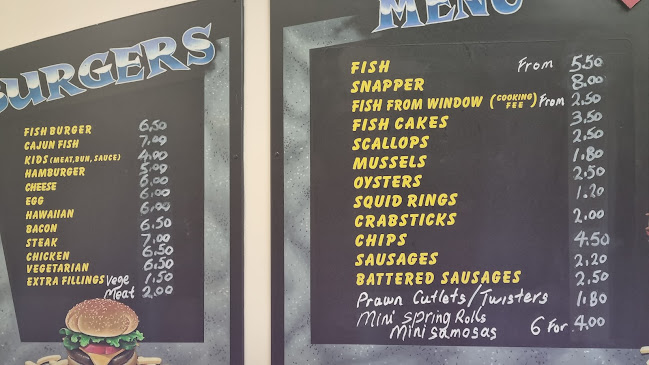 BURGERS
FISH BURGER 6.50
CAJUN FISH 7.00
KIDS (MEAT, BUN, SAUCE) 4.00
HAMBURGER 5.00
CHEESE 6.00
EGG 6.00
HAWAIIAN 6.00
BACON 6.50
STEAK 7.00
CHICKEN 6.50
VEGETARIAN 6.50
EXTRA FILLINGS Vege 1.50
Meat 2.00
MENU
FISH From 5.50
SNAPPER 8.00
FISH FROM WINDOW (COOKING FEE) From 2.50
FISH CAKES 3.50
SCALLOPS 2.50
MUSSELS 1.80
OYSTERS 2.50
SQUID RINGS 1.20
CRABSTICKS 2.00
CHIPS 4.50
SAUSAGES 2.20
BATTERED SAUSAGES 2.50
Prawn Cutlets/Twisters 1.80
Mini Spring Rolls
Mini samosas 6 For 4.00